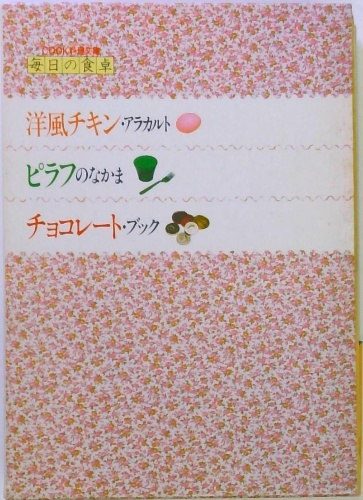 COOK料理文庫
毎日の食卓
洋風チキン・アラカルト
ピラフのなかま
チョコレート・ブック